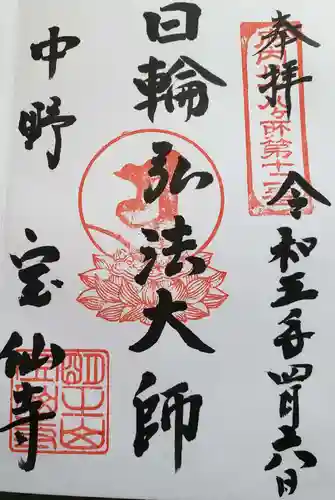 奉拝 令和五年四月六八日
日輪弘法大師
中野 宝仙寺